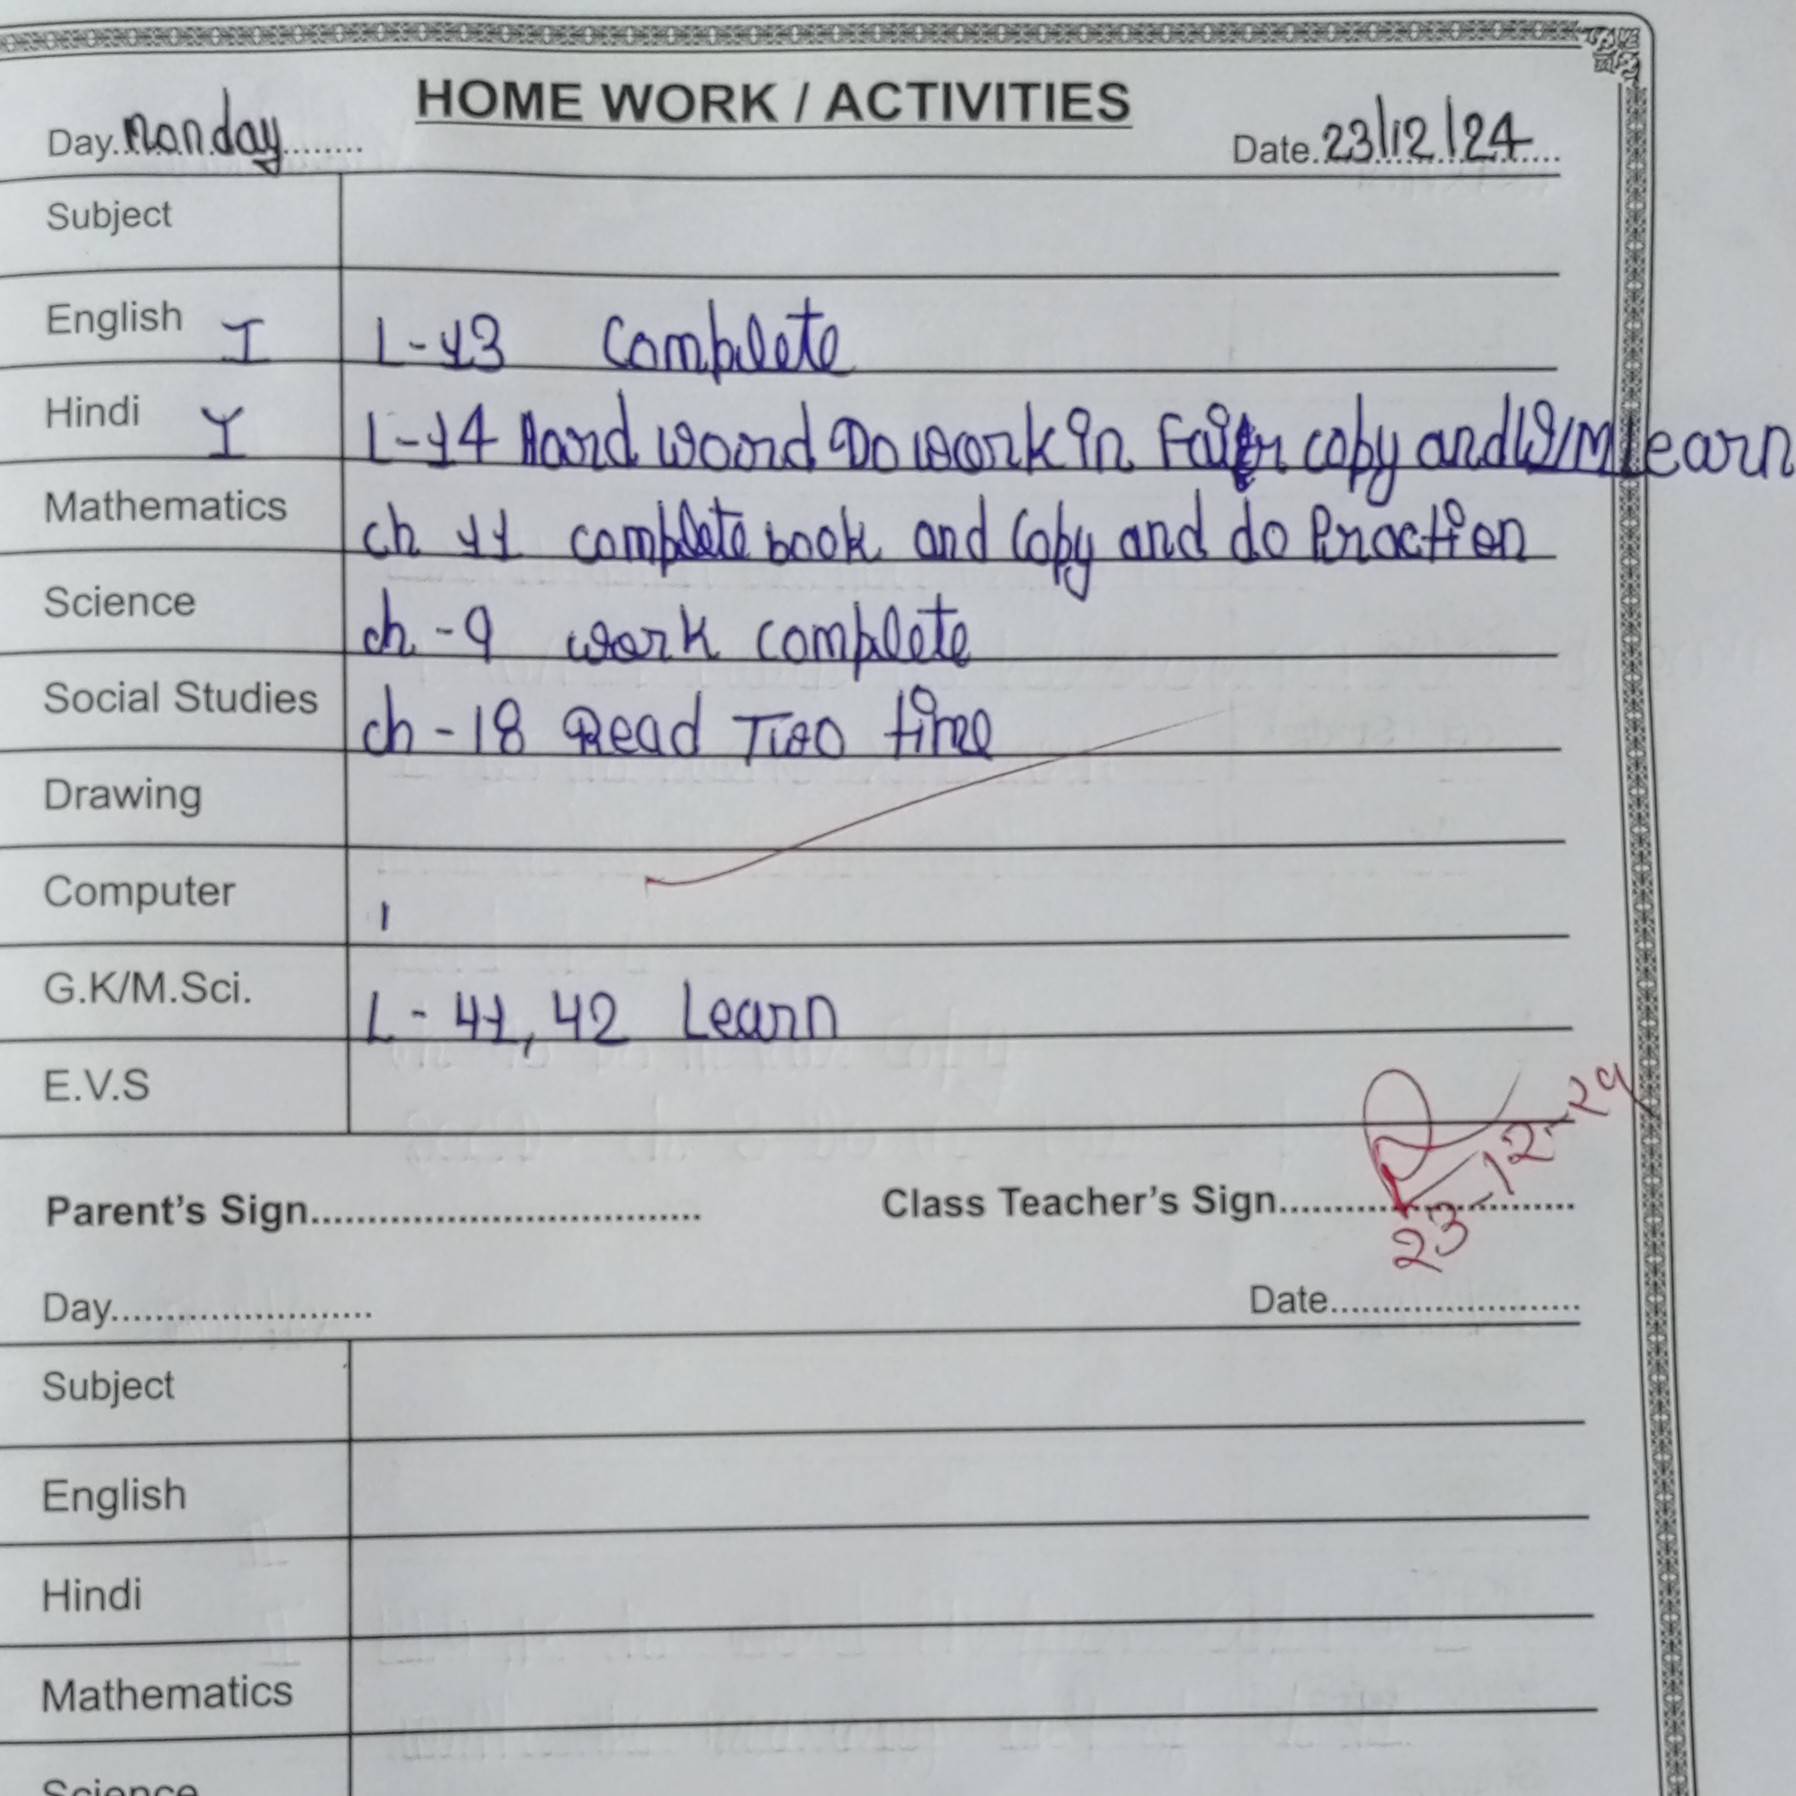 HOME WORK / ACTIVITIES
Day. Monday Date. 23/12/24
Subject
English I L-13 Complete
Hindi I L-14 Hard word Do work in Fair copy and W/M Learn
Mathematics ch 11 complete book and Copy and do Praction
Science ch - 9 work complete
Social Studies ch - 18 Read Two time
Drawing
Computer
G.K/M.Sci. L - 41, 42 Learn
E.V.S
Parent's Sign.................................. Class Teacher's Sign..........................
23-12-24
Day....................... Date......................
Subject
English
Hindi
Mathematics
Science